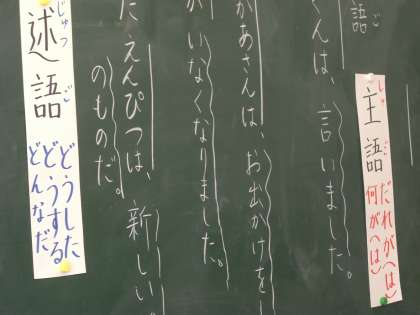 語
ご
主語
しゅご
だれが(は)
何が(は)
くんは、言いました。
かあさんは、お出かけをし
が いなくなりました。
た えんぴつは、新しい
のものだ。
述語
じゅつご
どうした
どうする
どんなだ